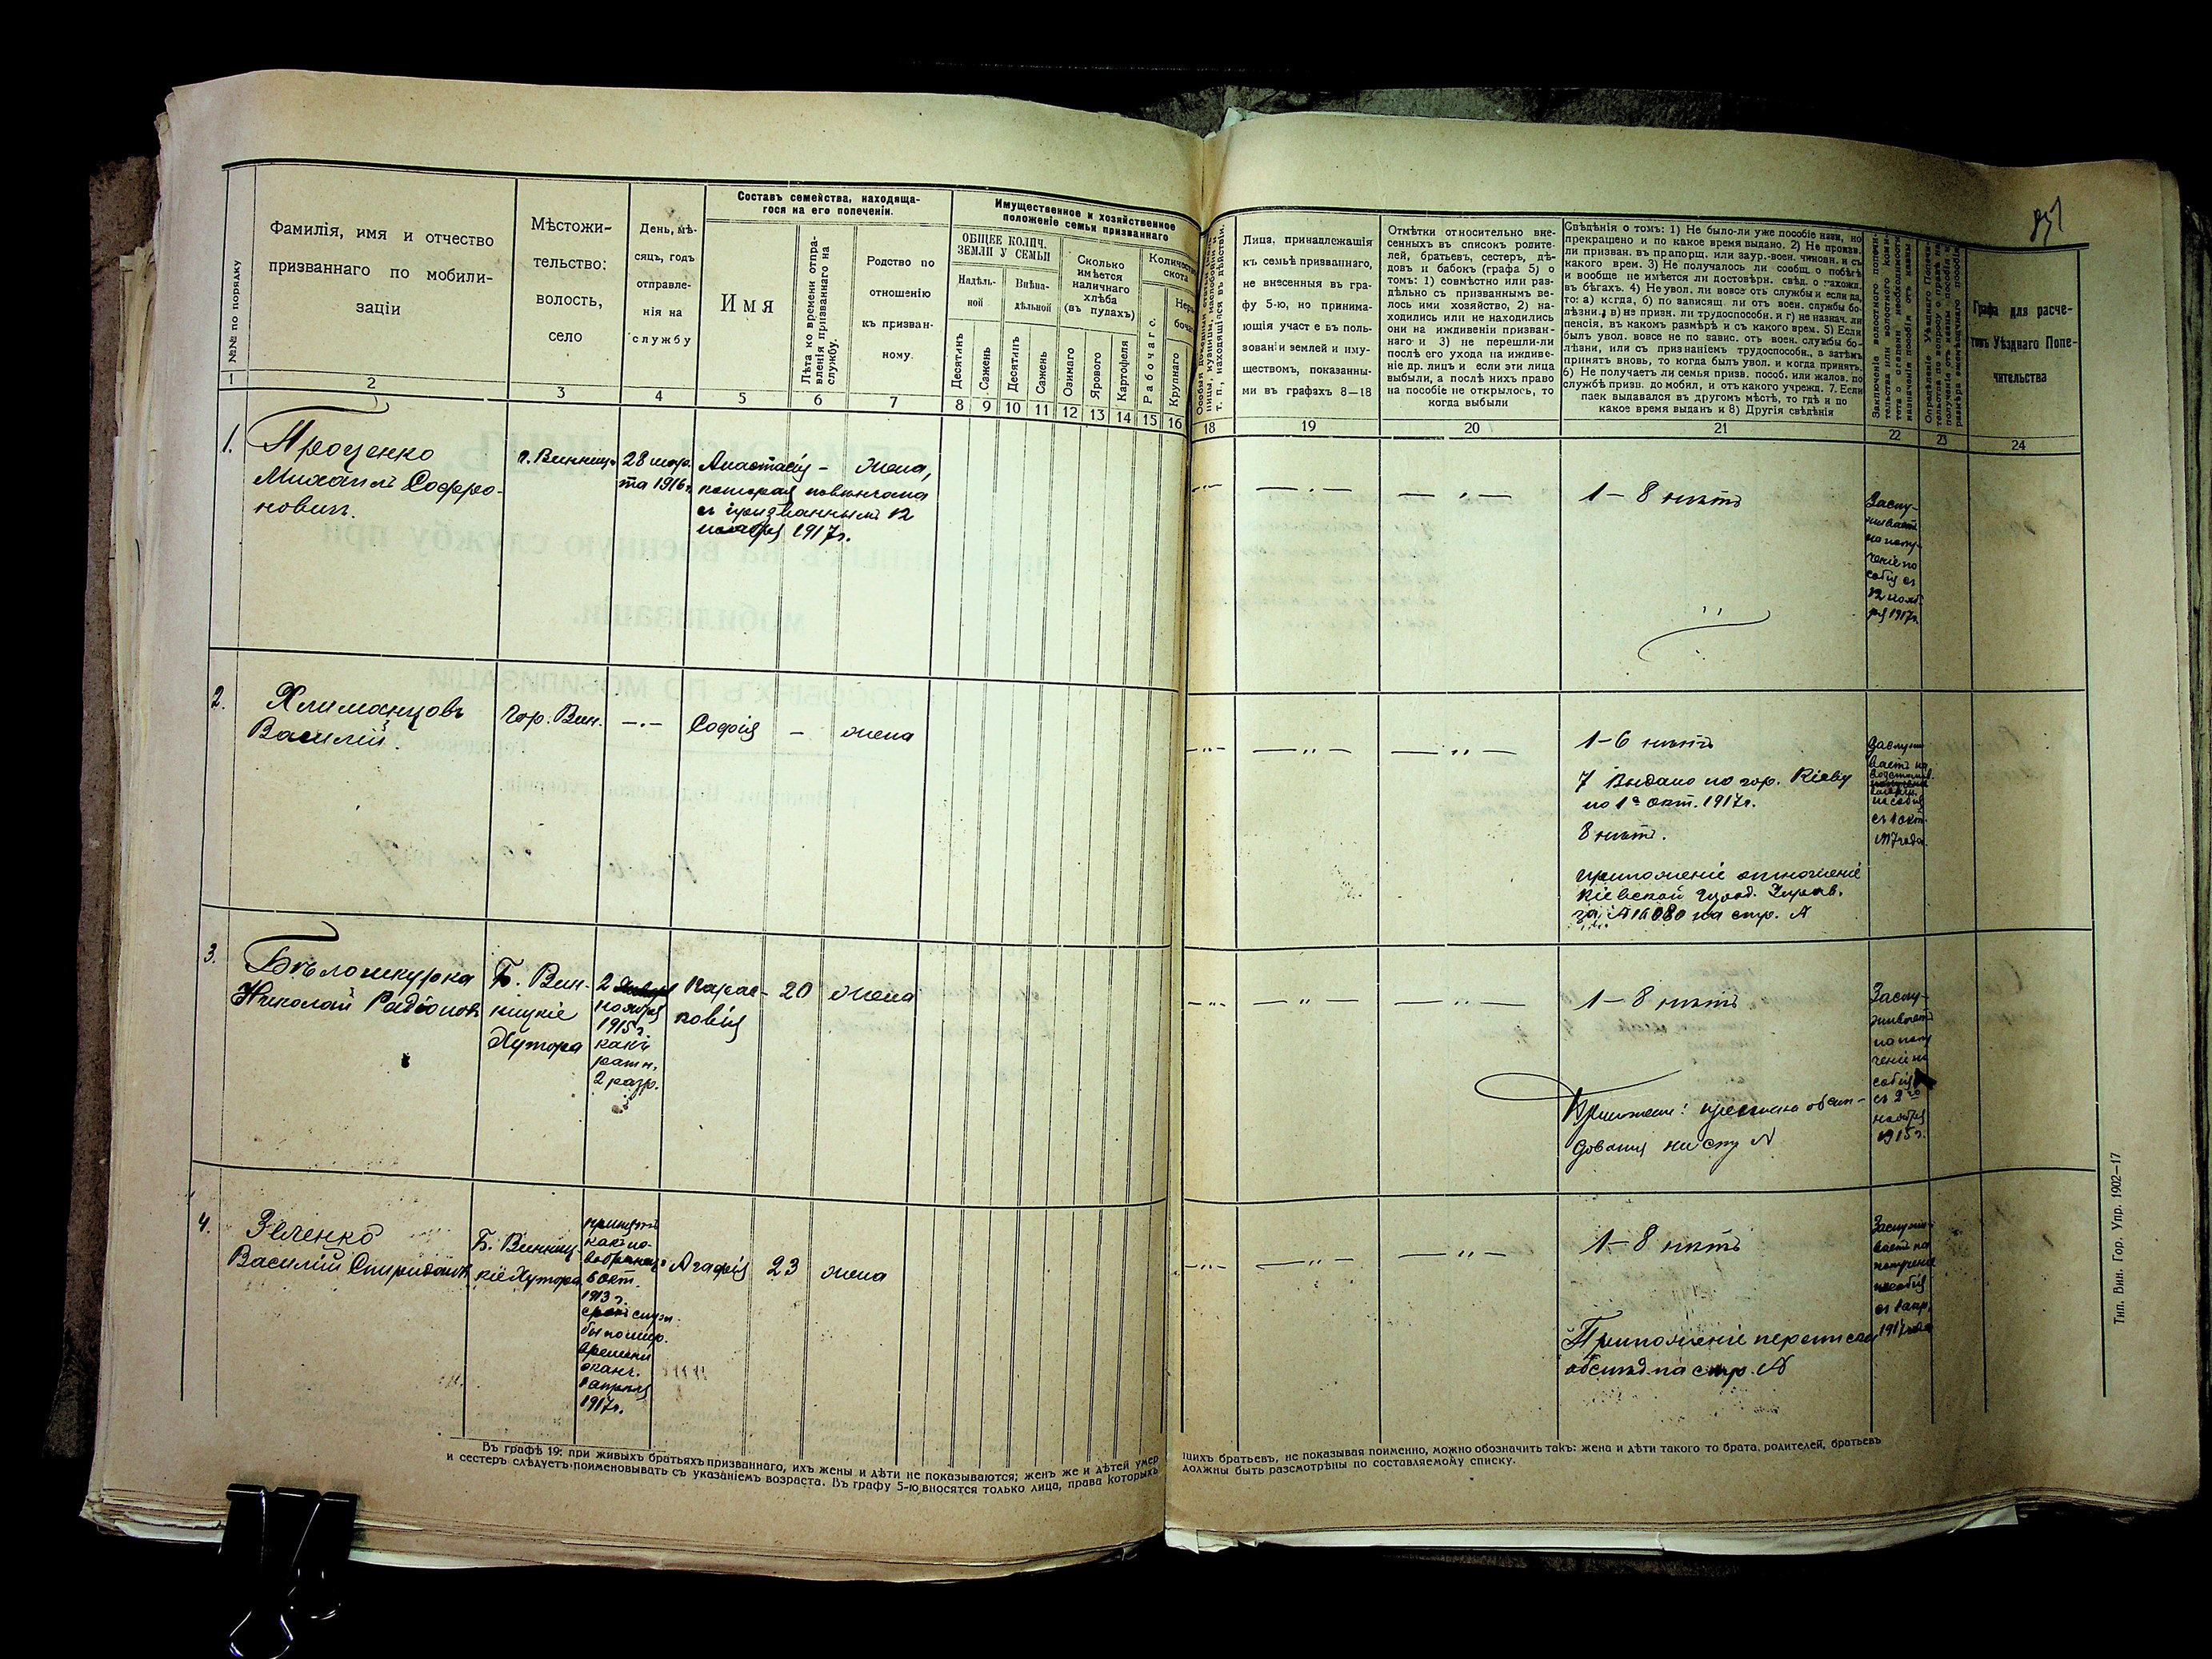 851
№№ по порядку
Фамилія, имя и отчество
призваннаго по мобили-
заціи
Мѣстожи-
тельство:
волость,
село
День, мѣ-
сяцъ, годъ
отправле-
нія на
службу
Составъ семейства, находяща-
гося на его попеченіи.
Имя
Лѣта ко времени отпра-
вленія призваннаго на
службу.
Родство по
отношенію
къ призван-
ному.
Имущественное и хозяйственное
положеніе семьи призваннаго
ОБЩЕЕ КОЛИЧ.
ЗЕМЛИ У СЕМЬИ
Надѣль-
ной
Внѣна-
дѣльной
Десятинъ
Сажень
Десятинъ
Сажень
Сколько
имѣется
наличнаго
хлѣба
(въ пудахъ)
Озимаго
Ярового
Картофеля
Количество
скота
Рабочаго
Крупнаго
Лица, принадлежащія
къ семьѣ призваннаго,
не внесенныя въ гра-
фу 5-ю, но принима-
ющія участіе въ поль-
зованіи землей и иму-
ществомъ, показанны-
ми въ графахъ 8—18
Отмѣтки относительно вне-
сенныхъ въ списокъ родите-
лей, братьевъ, сестеръ, дѣ-
довъ и бабокъ (графа 5) о
томъ: 1) совмѣстно или раз-
дѣльно съ призваннымъ ве-
лось ими хозяйство, 2) на-
ходились или не находились
они на иждивеніи призван-
наго и 3) не перешли-ли
послѣ его ухода на иждиве-
ніе др. лицъ и если эти лица
выбыли, а послѣ нихъ право
на пособіе не открылось, то
когда выбыли
Свѣдѣнія о томъ: 1) Не было-ли уже пособіе назн, но
прекращено и по какое время выдано. 2) Не произв.
ли призван. въ прапорщ. или заур.-воен. чиновн. и съ
какого врем. 3) Не получалось ли сообщ. о побѣгѣ
и вообще не имѣется ли достовѣрн. свѣд. о нахожд.
въ бѣгахъ. 4) Не увол. ли вовсе отъ службы и если да,
то: а) когда, б) по зависящ ли отъ воен. службы бо-
лѣзни, в) не призн. ли трудоспособн. и г) не назнач. ли
пенсія, въ какомъ размѣрѣ и съ какого врем. 5) Если
былъ увол. вовсе не по завис. отъ воен. службы бо-
лѣзни, или съ признаніемъ трудоспособн., а затѣмъ
принятъ вновь, то когда былъ увол. и когда принятъ.
6) Не получаетъ ли семья призв. пособ. или жалов. по
службѣ призв. до мобил, и отъ какого учрежд. 7. Если
паек выдавался въ другомъ мѣстѣ, то гдѣ и по
какое время выданъ и 8) Другія свѣдѣнія
Заключеніе волостного попечи-
тельства или волостного коми-
тета о степени необходимости
назначенія пособія отъ казны
Опредѣленіе Уѣзднаго Попечи-
тельства по вопросу о правѣ на
полученіе отъ казны пособія и
размѣра ежемѣсячнаго пособія
Графа для расче-
товъ Уѣзднаго Попе-
чительства
1 2 3 4 5 6 7 8 9 10 11 12 13 14 15 16 18 19 20 21 22 23 24
1.
Проценко
Михаилъ Софро-
новичъ.
г. Винниц.
28 мар-
та 1916 г.
Анастасія – жена,
которая повѣнчана
съ призваннымъ 12
ноября 1917 г.
1 – 8 нѣтъ
Заслу-
живаетъ
на полу-
ченіе по
собія съ
12 нояб-
ря 1917 г.
2.
Климанцовъ
Василій.
Гор. Вин.
Софія
–
жена
1 – 6 нѣтъ
7 Выдано по гор. Кіеву
по 1е окт. 1917 г.
8 нѣтъ.
приложеніе отношеніе
Кіевской Город. Управ.
за № 16080 на стр. №
Заслужи
ваетъ на
пособія
съ 1 окт.
1917 года
3.
Бѣлошкурка
Николай Радіонов
Б. Вин-
ницкіе
Хутора
2
ноября
1915 г.
какъ
ратн.
2 разр.
Парас-
ковія
20
жена
1 – 8 нѣтъ
дованія на стр №
Заслу-
живаетъ
на полу
ченіе по
собія
съ 2го
ноября
1915 г.
4.
Зеленко
Василій Спиридонов
Б. Винниц-
кіе Хутора
принятъ
какъ но-
вобранец
6 окт.
1913 г.
срокъ служ.
бы по мир.
времени
оканч.
1 апрѣля
1917 г.
Агафія
23
жена
1 – 8 нѣтъ
Приложеніе переписка
обслѣд на стр. №
Заслужи
ваетъ на
полученіе
пособія
съ 1 апр.
1917 года
Въ графѣ 19: при живыхъ братьяхъ призваннаго, ихъ жены и дѣти не показываются; женъ же и дѣтей умер
шихъ братьевъ, не показывая поименно, можно обозначить такъ: жена и дѣти такого то брата, родителей, братьевъ
и сестеръ слѣдуетъ поименовывать съ указаніемъ возраста. Въ графу 5-ю вносятся только лица, права которыхъ
должны быть разсмотрѣны по составляемому списку.
Тип. Вин. Гор. Упр. 1902—17